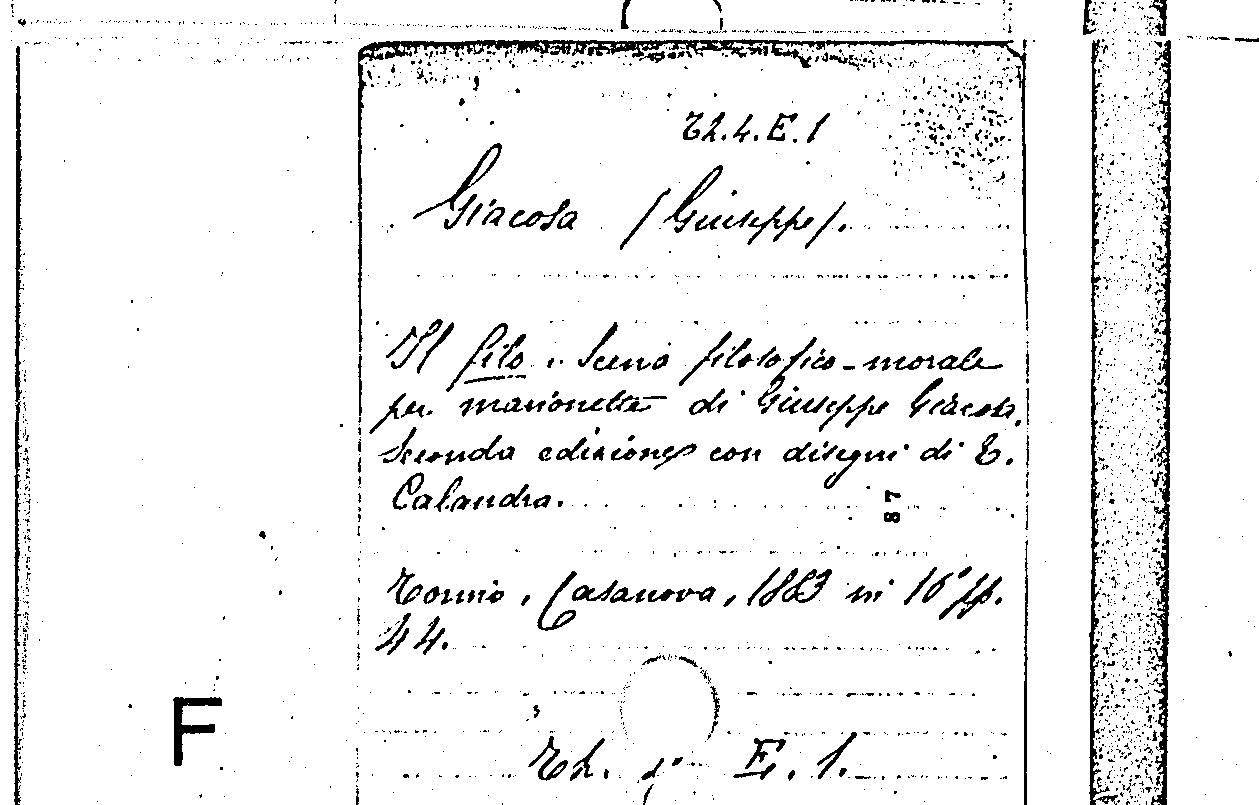 72.4.E.1
Giacosa (Giuseppe).
Il filo. Scena filosofico-morale
per marionette di Giuseppe Giacosa.
Seconda edizione con disegni di E.
Calandra.
87
Torino, Casanova, 1883 in 16° pp.
44.
F
E. 1.